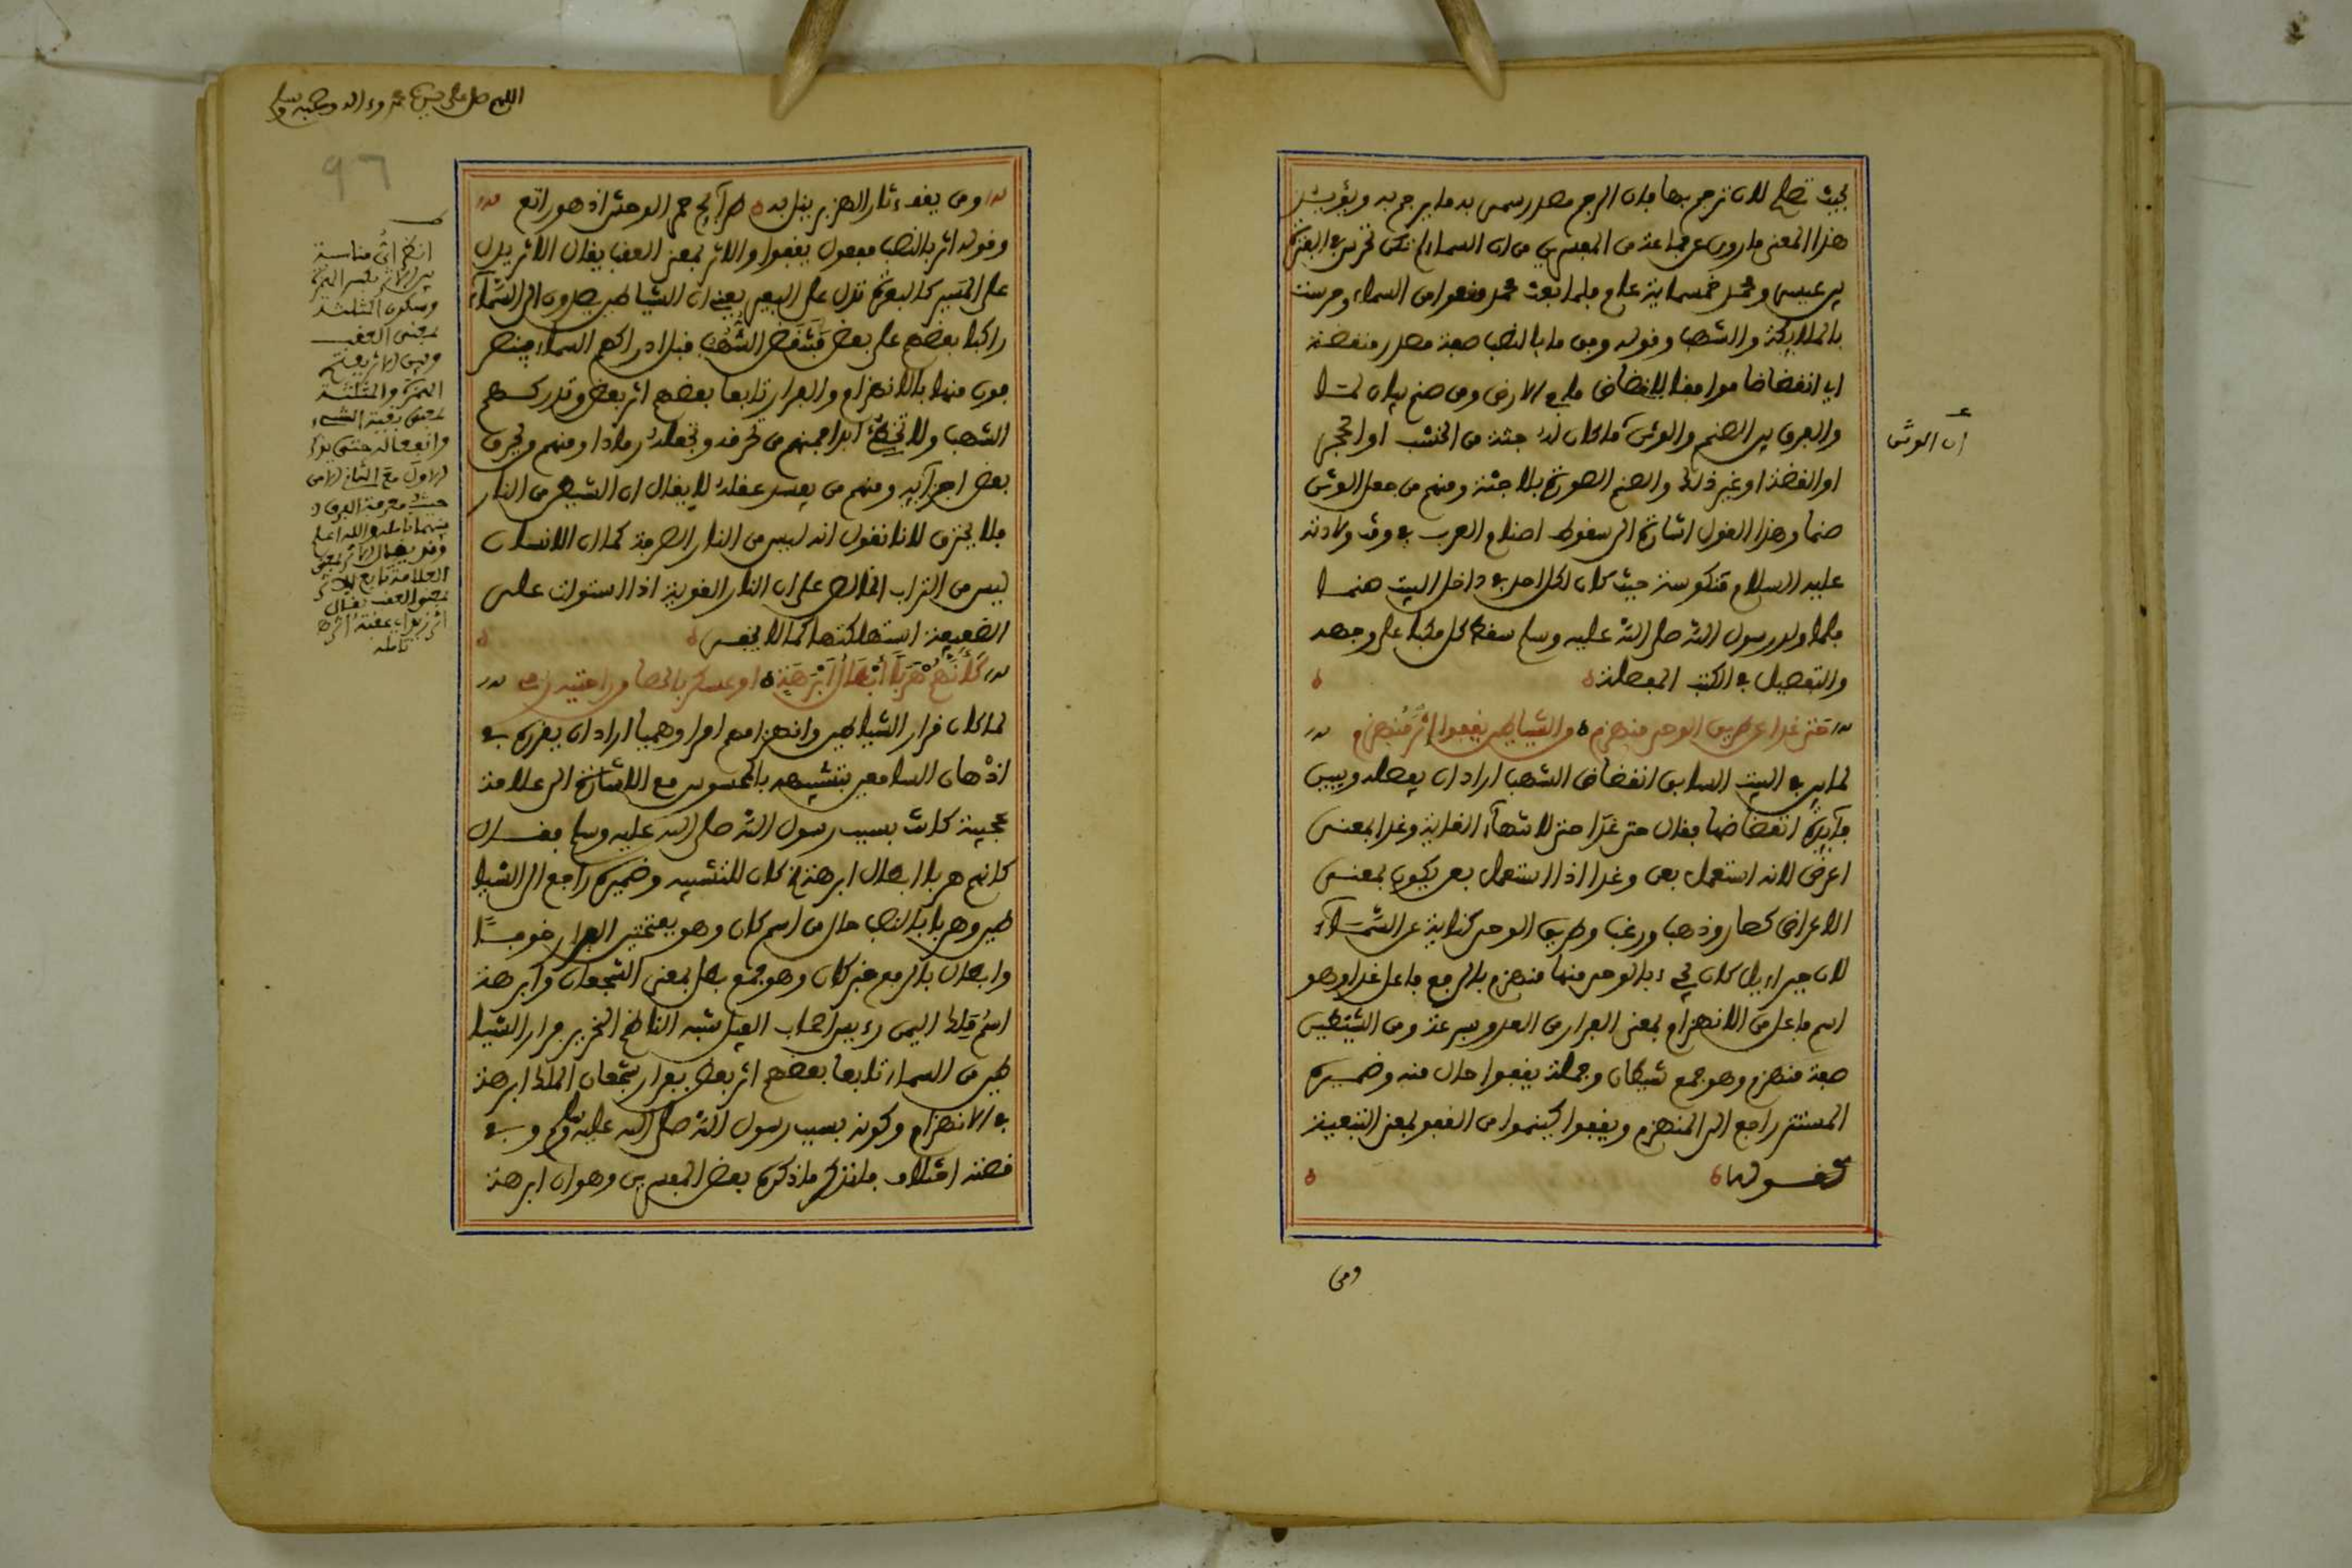 بحيث تصلح لان ترجم بها فان الرجم مصدر سمى به ما يرجم به ويؤيد
هذا المعنى ما روى عن جماعة من المفسرين من ان السماء لم تكن تحرس في الفترة
بين عيسى ومحمد خمسماية عام فلما بعث محمد منعوا من السماء وحرست
بالملايكة والشهب وقوله وفق ما بالنصب صفة مصدر منقضة
اي انقضاضا موافقا لانقضاض ما في الارض ومن صنم بيان لما
والفرق بين الصنم والوثن ما كان له جثة من الخشب او الحجر
ان الوثن
او الفضة او غير ذلك والصنم الصورة بلا جثة ومنهم من جعل الوثن
صنما وهذا القول اشارة الى سقوط اصنام العرب في وقت ولادته
عليه السلام منكوسة حيث كان لكل احد في داخل البيت صنما
فلما ولد رسول الله صلى الله عليه وسلم سقط كل مكبا على وجهه
والتفصيل في الكتب المفصلة
حتى غدا عن طريق الوحي منهزم من الشياطين يقفوا اثر منهزم
لما بين في البيت السابق انقضاض الشهب اراد ان يفصله ويبين
فايدة انقضاضها فقال حتى غدا حتى لانتهاء الغاية وغدا بمعنى
اعرض لانه استعمل بعن وغدا اذا استعمل بعن يكون بمعنى
الاعراض كصار وذهب ورغب وطريق الوحي كناية عن السماء
لان جبراءيل كان يجيء بالوحي منها منهزم بالرفع فاعل غدا وهو
اسم فاعل من الانهزام بمعنى الفرار من العدو بسرعة ومن الشيطين
صفة منهزم وهو جمع شيطان وجملة يقفوا حال منه وضميره
المستتر راجع الى المنهزم ويقفوا كينموا من القفو بمعنى التبعية
ومن
اللهم صل على سيدنا محمد وءاله وصحبه وسلم
٩٦
وقوله اثر بالنصب مفعول يقفوا والاثر بمعنى العقب يقال الاثر يدل
على المسير كالبعرة تدل على البعير يعني ان الشياطين يصعدون الى السماء
راكبا بعضهم على بعض فتنقض الشهب قبل ادراكهم السماء
منها بالانهزام والفرار تابعا بعضهم اثر بعض وتدركهم
الشهب ولا تخطئ ابدا فمنهم من تحرقه وتجعله رمادا ومنهم من يحرق
بعض اجزآيه ومنهم من يفسد عقله لا يقال ان الشيطن من النار
فلا يحترق لانا نقول انه ليس من النار الصرفة كما ان الانسان
ليس من التراب الخالص على ان النار القوية اذا استولت على
الضعيفة استهلكتها كما لا يخفى
كانهم هربا ابطال ابرهة او عسكر بالحصا من راحتيه رمي
لما كان فرار الشياطين وانهزامهم امرا وهميا اراد ان يقرره في
اذهان السامعين بتشبيهه بالمحسوس مع الاشارة الى علامة
عجيبة كانت بسبب رسول الله صلى الله عليه وسلم فقال
كانهم هربا ابطال ابرهة كان للتشبيه وضميره راجع الى الشيا
طين وهربا بالنصب حال من اسم كان وهو بفتحتين الفرار خوفا
وابطال بالرفع خبر كان وهو جمع بطل بمعنى الشجعان وابرهة
اسم ملك اليمن رءيس اصحاب الفيل شبه الناظم النحرير فرار الشيا
طين من السماء تابعا بعضهم اثر بعض بفرار شجعان الملك ابرهة
في الانهزام وكونه بسبب رسول الله صلى الله عليه وسلم وفي
فلنذكر ما ذكره بعض المفسرين وهو ان ابرهة
انظر اي مناسبة
بين الاثر بكسر الهمزة
وسكون المثلثة
بمعنى العقب
وبين الاثر بفتح
الهمزة والمثلثة
بمعنى بقية الشيء